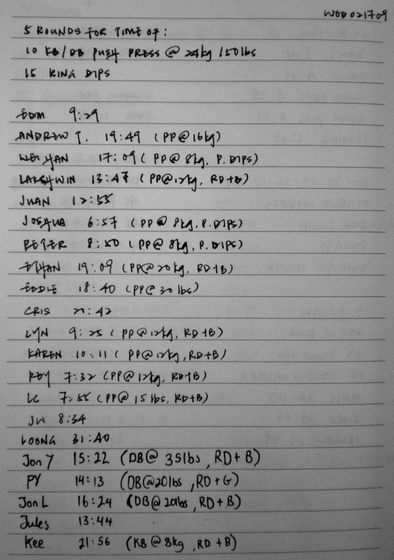 WOD 021709
5 ROUNDS FOR TIME OF:
10 KB/DB PUSH PRESS @ 24kg/50lbs
15 RING DIPS
EDM 9:29
ANDREW T. 19:49 (PP@16kg)
WEI YAN 17:09 (PP@ 8kg, P.DIPS)
LAKSHWIN 13:47 (PP@12kg, RD+B)
JUAN 12:55
JOSHUA 6:57 (PP@ 8kg, P.DIPS)
PETER 8:50 (PP@ 8kg, P.DIPS)
ETHAN 19:09 (PP@20kg, RD+B)
EDDIE 18:40 (PP@30lbs)
CRIS 21:42
LYN 9:25 (PP@12kg, RD+B)
KAREN 10:11 (PP@12kg, RD+B)
7:32 (PP@12kg, RD+B)
LC 7:55 (PP@15lbs, RD+B)
8:34
LOONG 31:40
Jon Y 15:22 (DB@ 35lbs, RD+B)
PY 14:13 (DB@20lbs, RD+G)
Jon L 16:24 (DB@20lbs, RD+B)
Jules 13:44
Kee 21:56 (KB@8kg, RD+B)